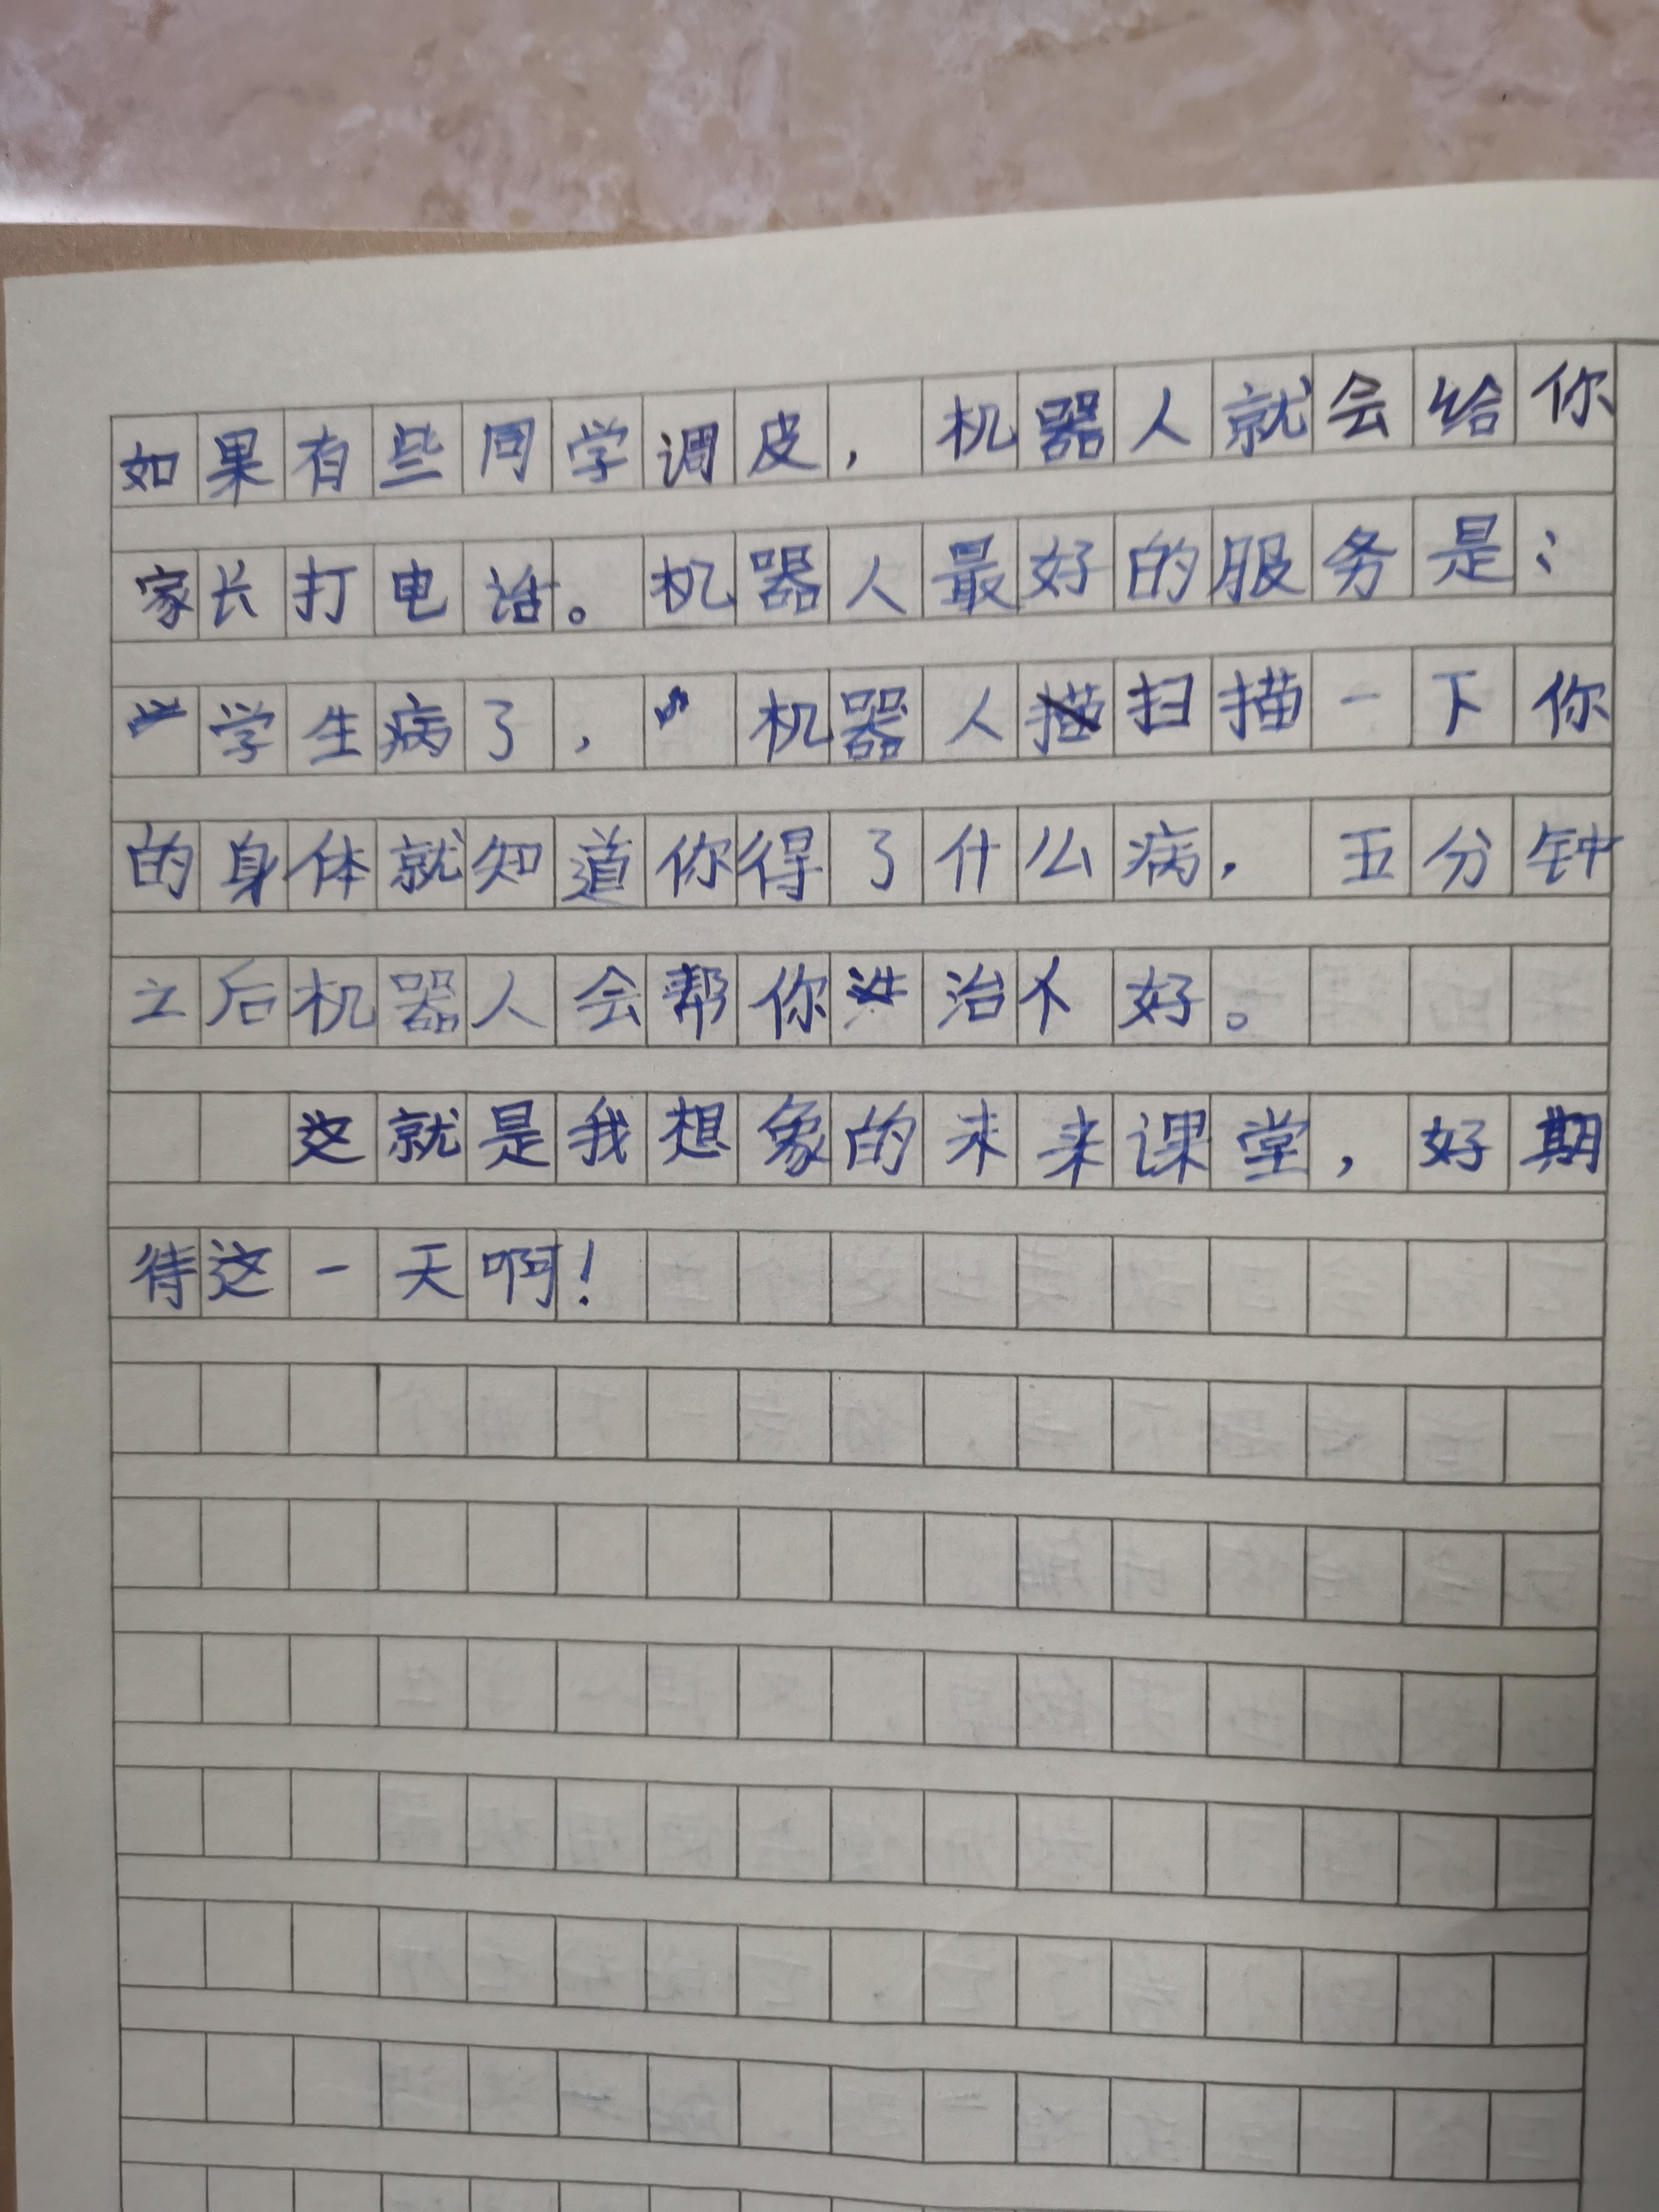 如果有些同学调皮，机器人就会给你
家长打电话。机器人最好的服务是：
学生病了，机器人扫描一下你
的身体就知道你得了什么病，五分钟
之后机器人会帮你治不好。
这就是我想象的未来课堂，好期
待这一天啊！